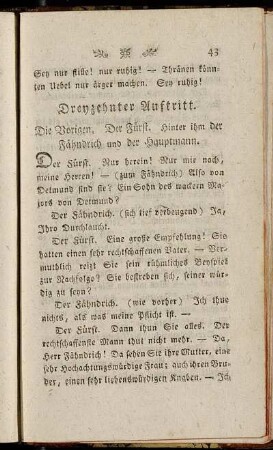 43
Sey nur stille! nur ruhig! — Thränen könn-
ten Uebel nur ärger machen. Sey ruhig!
Dreyzehnter Auftritt.
Die Vorigen. Der Fürst. Hinter ihm der
Fähndrich und der Hauptmann.
Der Fürst. Nur herein! Nur mir nach,
meine Herren! — (zum Fähndrich) Also von
Detmund sind sie? Ein Sohn des wackern Ma-
jors von Detmund?
Der Fähndrich. (sich tief verbeugend) Ja,
Ihro Durchlaucht.
Der Fürst. Eine große Empfehlung! Sie
hatten einen sehr rechtschaffenen Vater. — Ver-
muthlich reizt Sie sein rühmliches Beyspiel
zur Nachfolge! Sie bestreben sich, seiner wür-
dig zu seyn?
Der Fähndrich. (wie vorher) Ich thue
nichts, als was meine Pflicht ist. —
Der Fürst. Dann thun Sie alles. Der
rechtschaffenste Mann thut nicht mehr. — Da,
Herr Fähndrich! Da sehen Sie ihre Mutter, eine
sehr Hochachtungswürdige Frau; auch ihren Bru-
der, einen sehr liebenswürdigen Knaben. — Ich